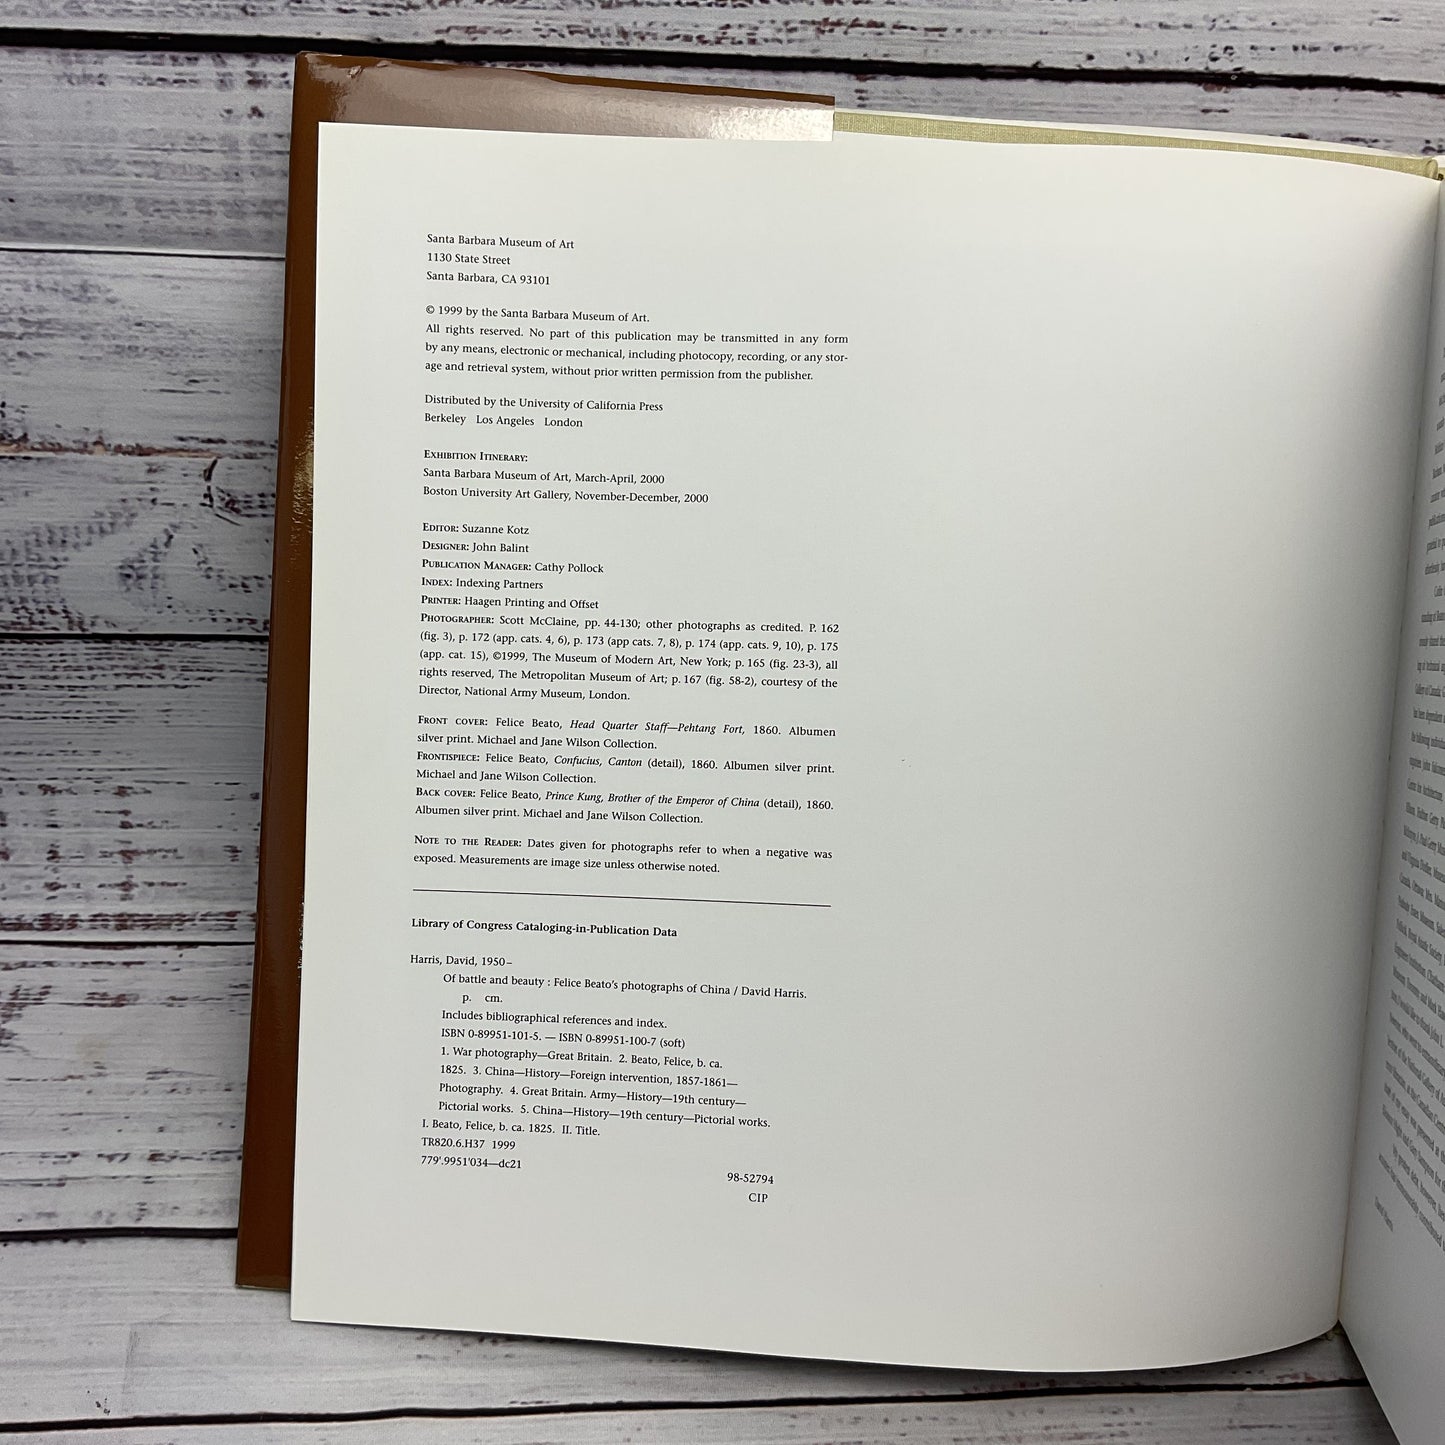 Santa Barbara Museum of Art
1130 State Street
Santa Barbara, CA 93101
© 1999 by the Santa Barbara Museum of Art.
All rights reserved. No part of this publication may be transmitted in any form
by any means, electronic or mechanical, including photocopy, recording, or any stor-
age and retrieval system, without prior written permission from the publisher.
Distributed by the University of California Press
Berkeley Los Angeles London
Exhibition Itinerary:
Santa Barbara Museum of Art, March-April, 2000
Boston University Art Gallery, November-December, 2000
Editor: Suzanne Kotz
Designer: John Balint
Publication Manager: Cathy Pollock
Index: Indexing Partners
Printer: Haagen Printing and Offset
Photographer: Scott McClaine, pp. 44-130; other photographs as credited. P. 162
(fig. 3), p. 172 (app. cats. 4, 6), p. 173 (app cats. 7, 8), p. 174 (app. cats. 9, 10), p. 175
(app. cat. 15), ©1999, The Museum of Modern Art, New York; p. 165 (fig. 23-3), all
rights reserved, The Metropolitan Museum of Art; p. 167 (fig. 58-2), courtesy of the
Director, National Army Museum, London.
Front cover: Felice Beato, Head Quarter Staff—Pehtang Fort, 1860. Albumen
silver print. Michael and Jane Wilson Collection.
Frontispiece: Felice Beato, Confucius, Canton (detail), 1860. Albumen silver print.
Michael and Jane Wilson Collection.
Back cover: Felice Beato, Prince Kung, Brother of the Emperor of China (detail), 1860.
Albumen silver print. Michael and Jane Wilson Collection.
Note to the Reader: Dates given for photographs refer to when a negative was
exposed. Measurements are image size unless otherwise noted.
Library of Congress Cataloging-in-Publication Data
Harris, David, 1950–
Of battle and beauty : Felice Beato's photographs of China / David Harris.
p. cm.
Includes bibliographical references and index.
ISBN 0-89951-101-5. — ISBN 0-89951-100-7 (soft)
1. War photography—Great Britain. 2. Beato, Felice, b. ca.
1825. 3. China—History—Foreign intervention, 1857-1861—
Photography. 4. Great Britain. Army—History—19th century—
Pictorial works. 5. China—History—19th century—Pictorial works.
I. Beato, Felice, b. ca. 1825. II. Title.
TR820.6.H37 1999
779'.9951'034—dc21
98-52794
CIP